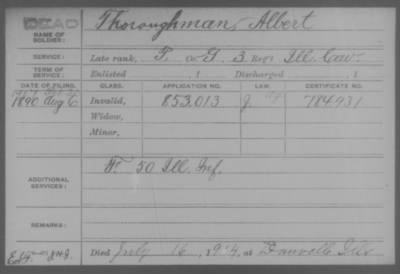 DEAD
NAME OF SOLDIER: Thoroughman, Albert
SERVICE: Late rank, F & I 3 Reg't Ill. Cav.
TERM OF SERVICE: Enlisted , 1 Discharged , 1
DATE OF FILING. CLASS. APPLICATION NO. LAW. CERTIFICATE NO.
1890 Aug 6 Invalid, 853,013 J 784931
Widow,
Minor,
ADDITIONAL SERVICES: F. 50 Ill. Inf.
REMARKS:
Died July 16, 19 4, at Danville Ills